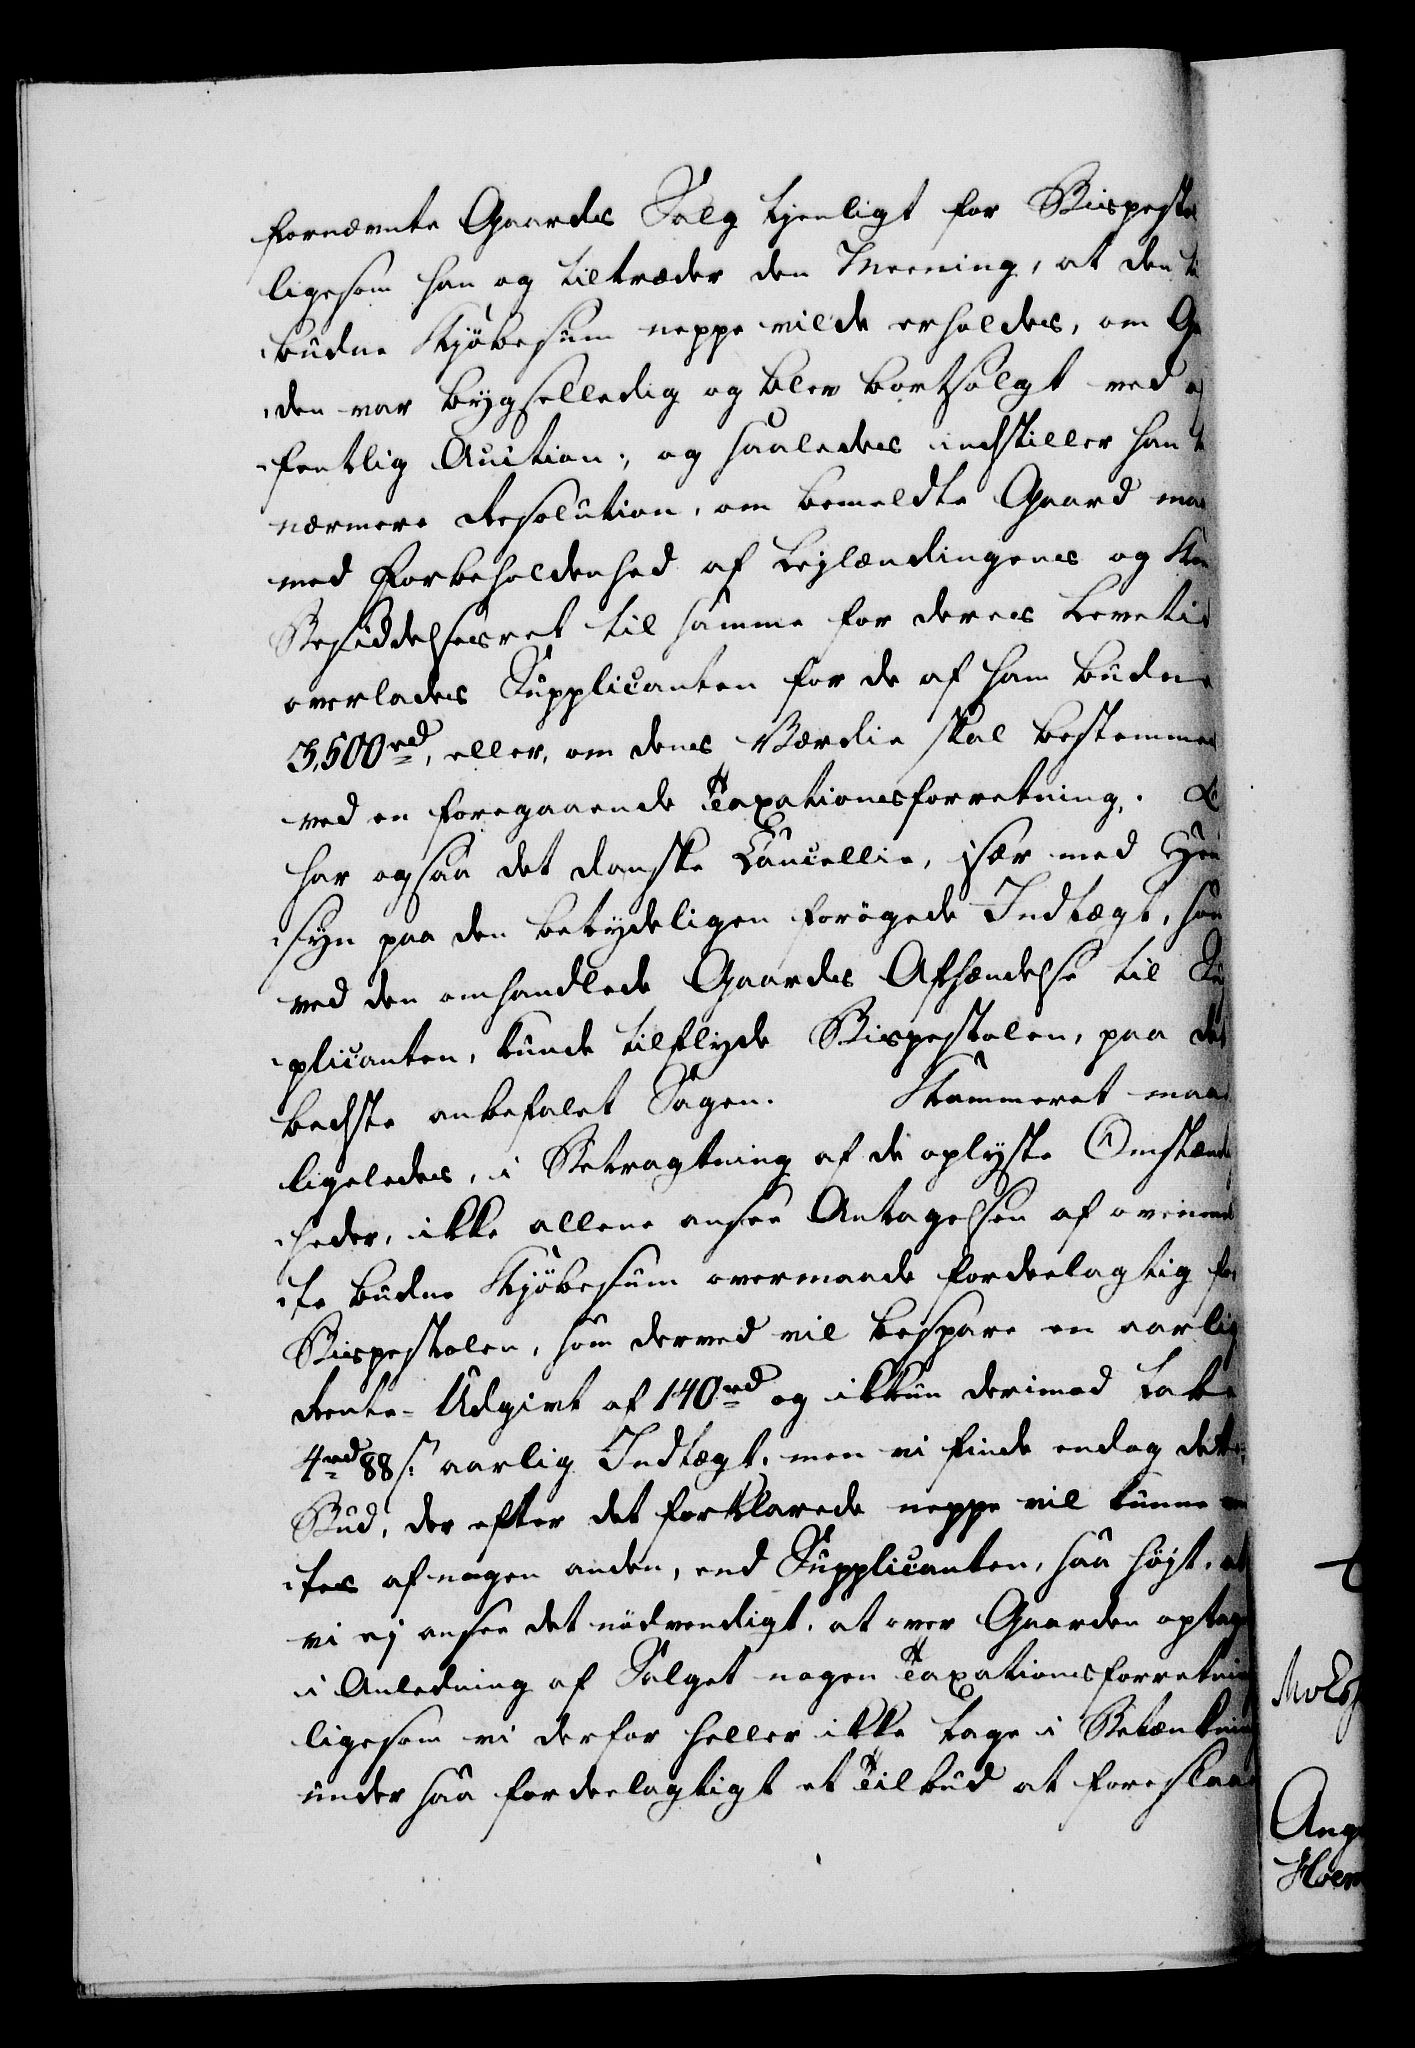 fornævnte Gaards Salg tjenligt for Bispestol
ligesom han og tiltræder den Meening, at den til
budne Kjöbesum neppe vilde erholdes, om Ga
den var bygselledig og blev bortsolgt ved of
fentlig Auction; og saaledes indstiller han t
nærmere Resolution, om bemeldte Gaard maa
med Forbeholdenhed af Lejlændingens og Kon
Besiddelsesret til samme for deres Levetid
overlades Supplicanten for de af ham budne
3,500 rd, eller, om dens Værdie skal bestemmes
ved en foregaaende Taxationsforretning.
har ogsaa det danske Cancellie, især med Hen
syn paa den betydeligen forögede Indtægt, som
ved den omhandlede Gaards Afhændelse til Sup
plicanten, kunde tilflyde Bispestolen, paa det
bedste anbefalet Sagen. Kammeret maae
ligeledes, i Betragtning af de oplyste Omstændig
heder, ikke allene ansee Antagelsen af ovenmeld
te budne Kjöbesum overmaade fordeelagtig for
Bispestolen, som derved vil bespare en aarlig
Rente-Udgivt af 140 rd og ikkun derimod tabe
4 rd 88 s. aarlig Indtægt, men vi finde endog dette
Bud, der efter det forklarede neppe vil kunne ven
tes af nogen anden, end Supplicanten, saa højt, at
vi ej ansee det nödvendigt, at over Gaarden optages
i Anledning af Salget nogen Taxationsforretning
ligesom vi derfor heller ikke tage i Betænkning
under saa fordeelagtigt et Tilbud at foreslaae
Ang